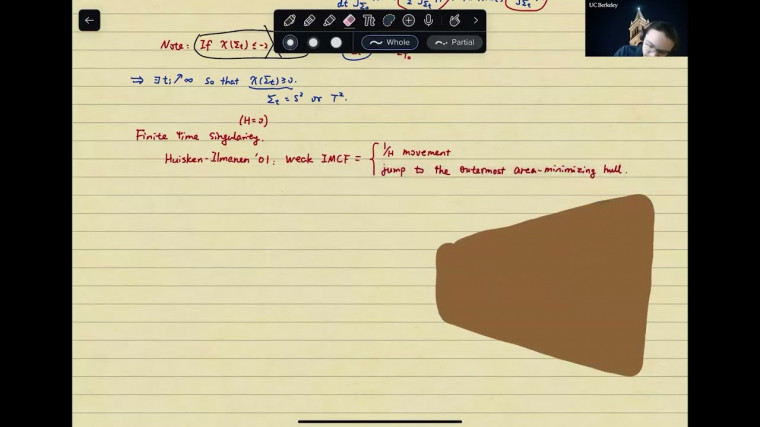 UC Berkeley
Whole
Partial
Note: If χ(Σt) ≤ -2
⇒ ∃ ti ↗ ∞ so that χ(Σt) ≥ 0.
Σt = S² or T².
(H=0)
Finite time singularity.
Huisken-Ilmanen '01: weak IMCF = { 1/H movement
jump to the outermost area-minimizing hull.